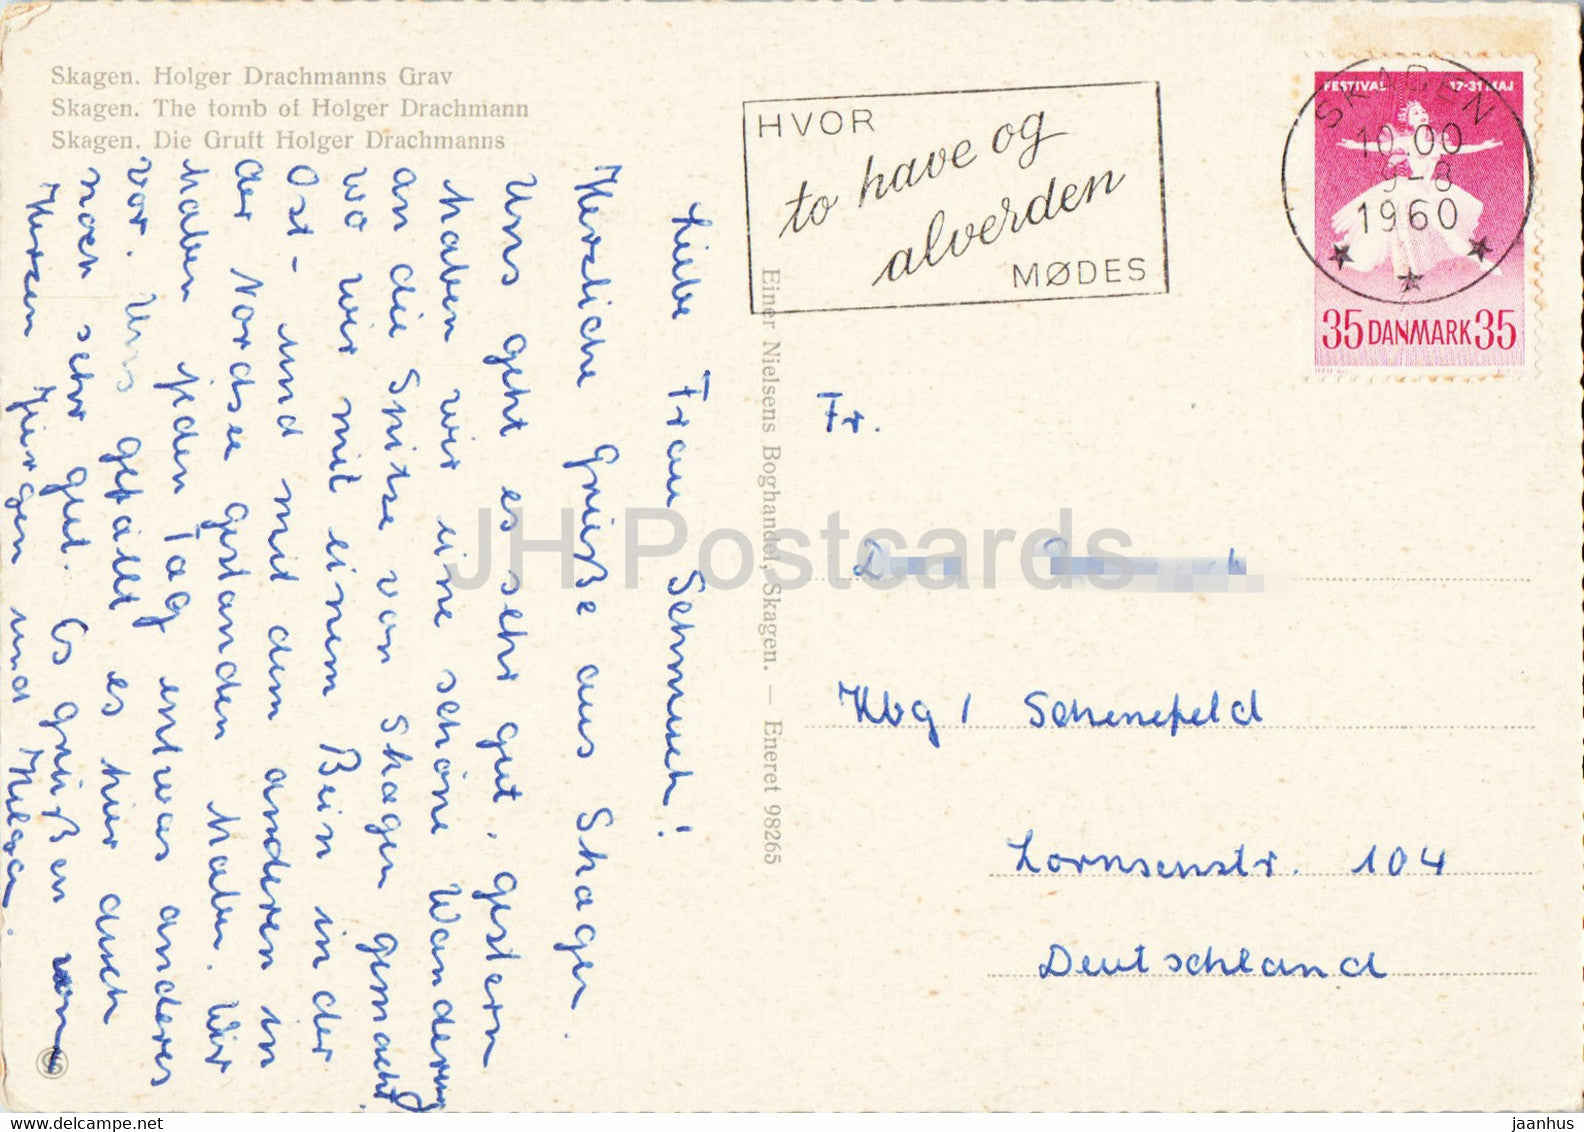 Skagen. Holger Drachmanns Grav
Skagen. The tomb of Holger Drachmann
Skagen. Die Gruft Holger Drachmanns
HVOR
to have og
alverden
MØDES
SKAGEN
10.00
9-8
1960
FESTIVAL 17-31 MAJ
35 DANMARK 35
Liebe Frau Schmuck!
Herzliche Grüße aus Skagen.
Uns geht es sehr gut, gestern
haben wir eine schöne Wanderung
an die Spitze von Skagen gemacht,
wo wir mit einem Bein in der
Ost- und mit dem anderen in
der Nordsee gestanden haben. Wir
haben jeden Tag entwas anderes
vor. Uns gefällt es hier auch
noch sehr gut. Es grüßen von
Herzen Jürgen und
Einer Nielsens Boghandel, Skagen. — Eneret 98265
Fr.
Hbg / Schenefeld
Lornsenstr. 104
Deutschland
JH Postcards
delcampe.net
jaanhus